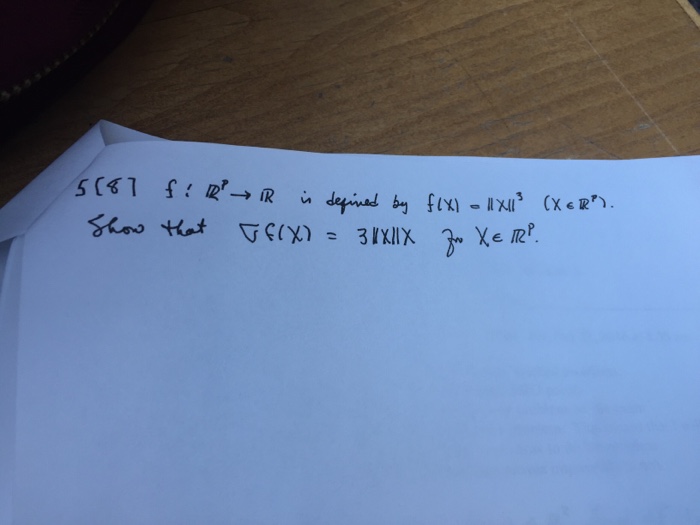 5[8] f : ℝᵖ → ℝ is defined by f(X) = ||X||³ (X ∈ ℝᵖ).
Show that ∇f(X) = 3||X||X for X ∈ ℝᵖ.